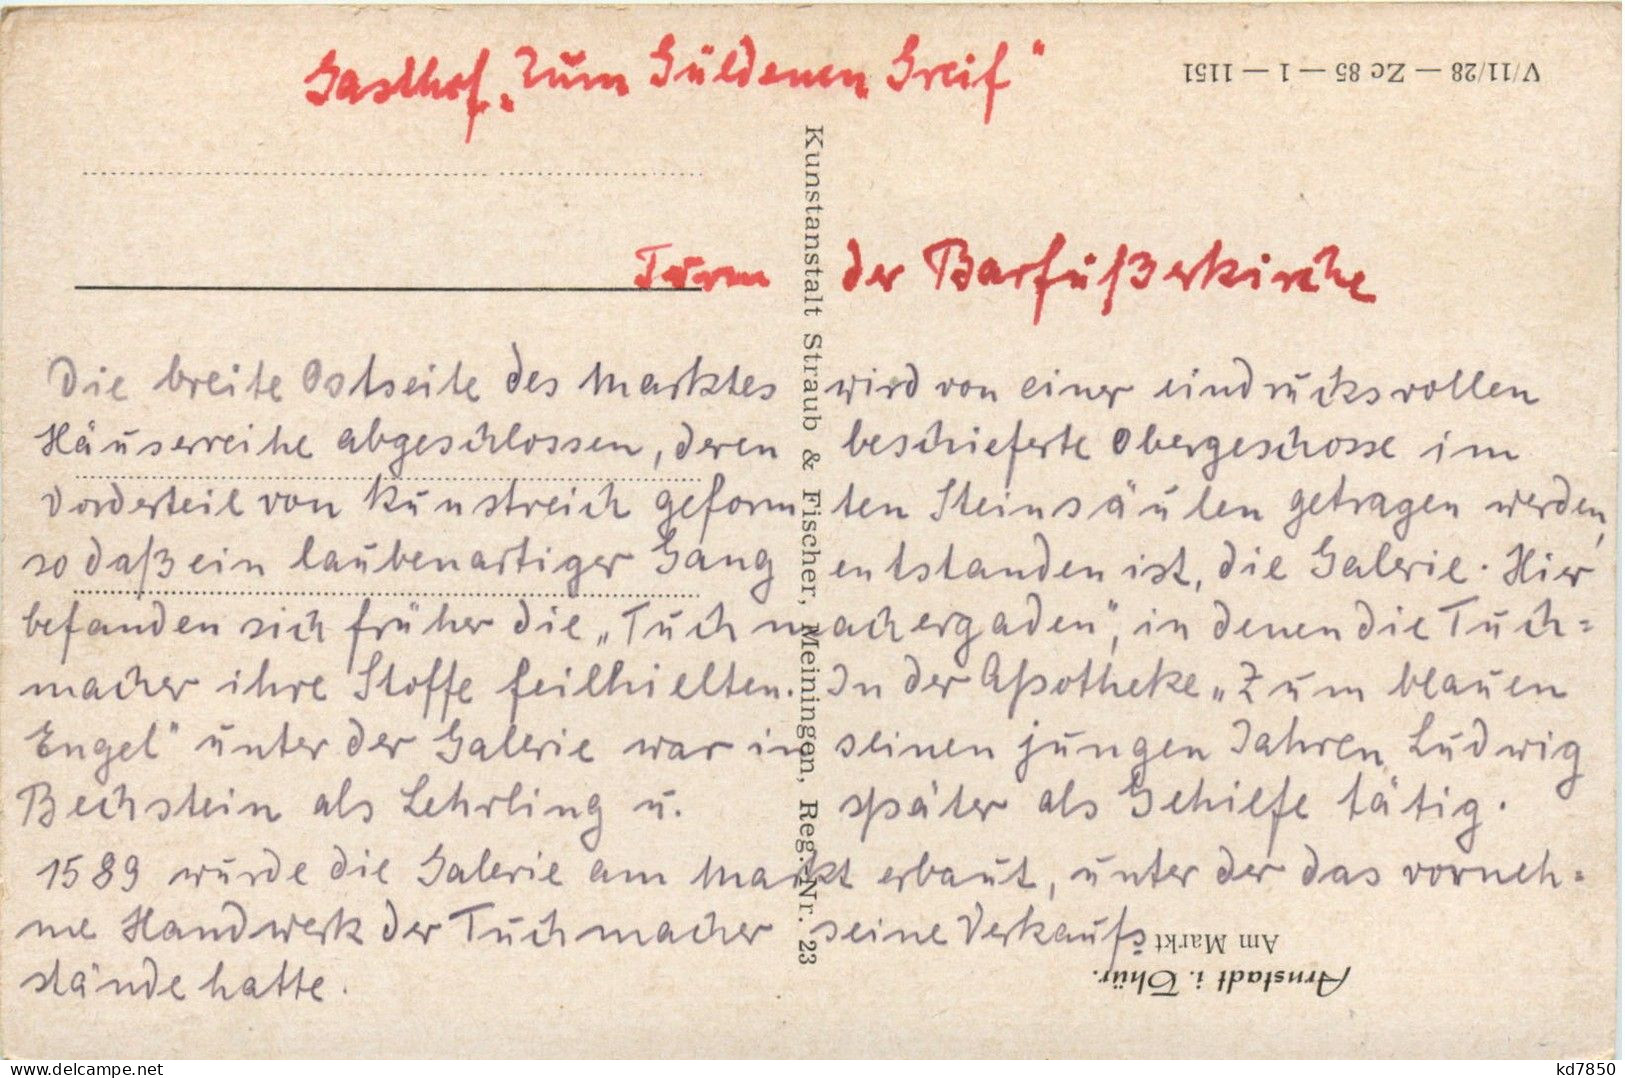 Gasthof „Zum Güldenen Greif"
V/11/28 — Zc 85 — 1 — 1151
Turm der Barfüßerkirche
Kunstanstalt Straub & Fischer, Meiningen, Reg.-Nr. 23
Die breite Ostseite des Marktes wird von einer eindrucksvollen
Häuserreihe abgeschlossen, deren beschieferte Obergeschosse im
Vorderteil von kunstreich geformten Steinsäulen getragen werden,
so daß ein laubenartiger Gang entstanden ist, die Galerie. Hier
befanden sich früher die „Tuchmachergaden", in denen die Tuch=
macher ihre Stoffe feilhielten. In der Apotheke „Zum blauen
Engel" unter der Galerie war in seinen jungen Jahren Ludwig
Bechstein als Lehrling u. später als Gehilfe tätig.
1589 wurde die Galerie am Markt erbaut, unter der das vorneh=
me Handwerk der Tuchmacher seine Verkaufs=
stände hatte.
Arnstadt i. Thür.
Am Markt
kd7850
delcampe.net